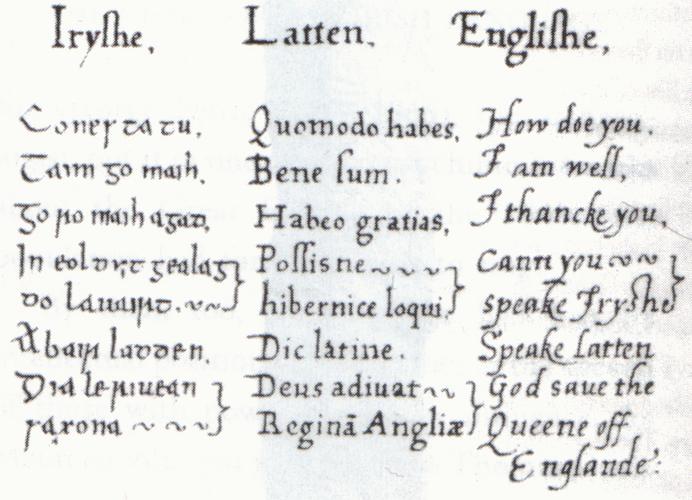 Iryſhe, Latten. Engliſhe,
Coneſ ta tu, Quomodo habes, How doe you.
Taim go maih. Bene ſum. I am well,
Go ro maih agad, Habeo gratias, I thancke you,
In gealag Poſſis ne ~ ~ ~ Cann you ~ ~
do lauairt. ~ ~ hibernice loqui, ſpeake Iryſhe
Abair ladden, Dic latine. Speake latten
Dia le riuean Deus adiuat ~ ~ God saue the
ſaxona ~ ~ ~ Reginā Angliæ Queene off
Englande.